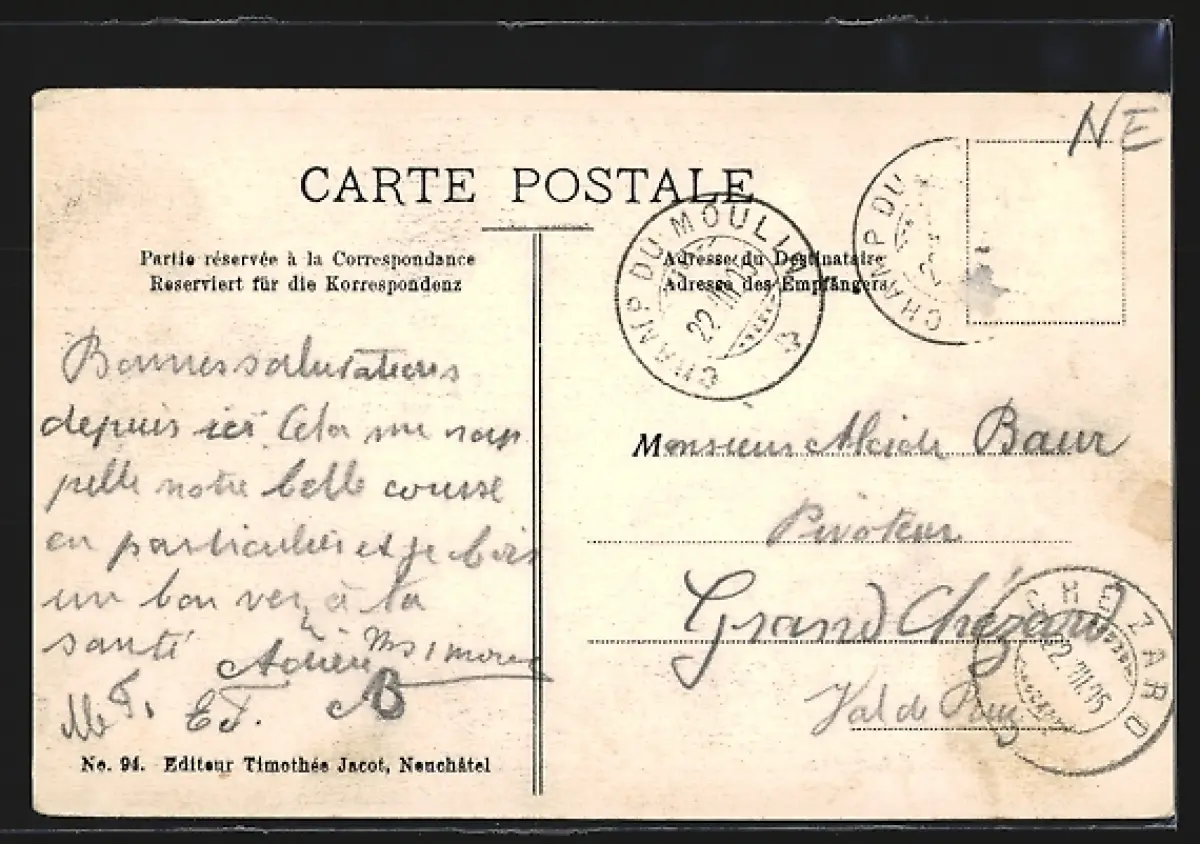 NE
CARTE POSTALE
Partie réservée à la Correspondance
Reserviert für die Korrespondenz
Adresse du Destinataire
Adresse des Empfängers
CHAMP DU MOULIN
22 VII 05
CHAMP DU
Bonnes salutations
depuis ici. Cela me rap
pelle notre belle course
en particulier et je bois
un bon verre à ta
santé
Adrien
E.J.
B
No. 94. Editeur Timothée Jacot, Neuchâtel
Monsieur Alcide Baur
Pivoteur
Grand Chézard
Val de Ruz
CHEZARD
22 VII 05